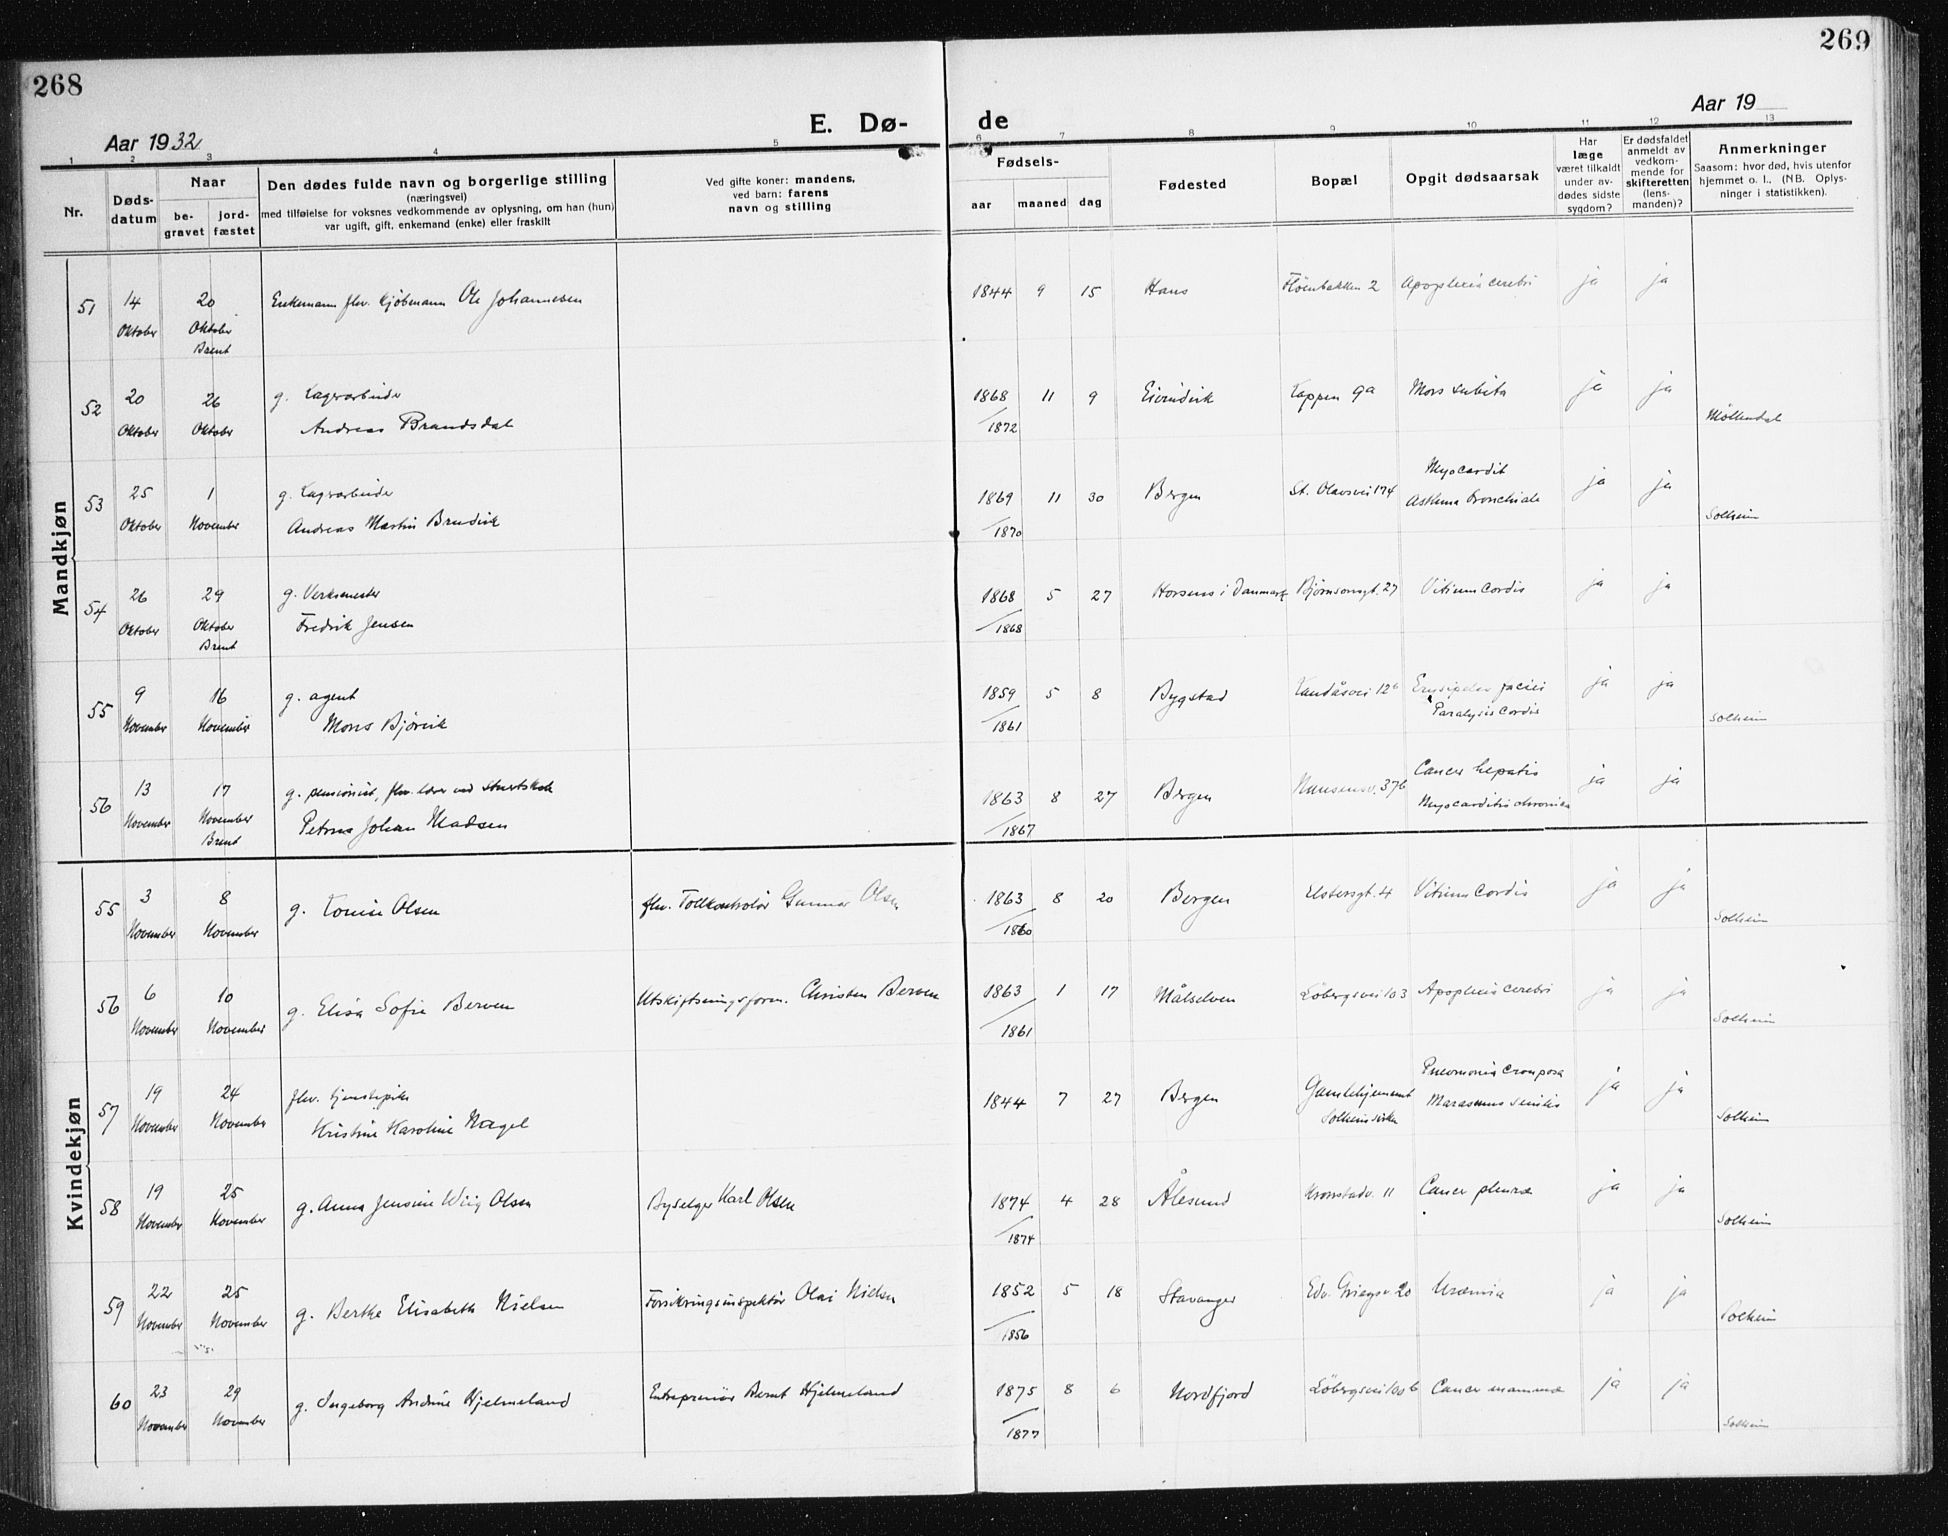 268
269
Aar 1932
E. Dø-
de
Aar 19
1 2 3 4 5 6 7 8 9 10 11 12 13
Nr.
Døds-
datum
Naar
be-
gravet
jord-
fæstet
Den dødes fulde navn og borgerlige stilling
(næringsvei)
med tilføielse for voksnes vedkommende av oplysning, om han (hun)
var ugift, gift, enkemand (enke) eller fraskilt
Ved gifte koner: mandens,
ved barn: farens
navn og stilling
Fødsels-
aar
maaned
dag
Fødested
Bopæl
Opgit dødsaarsak
Har
læge
været tilkaldt
under av-
dødes sidste
sygdom?
Er dødsfaldet
anmeldt av
vedkom-
mende for
skifteretten
(lens-
manden)?
Anmerkninger
Saasom: hvor død, hvis utenfor
hjemmet o. l., (NB. Oplys-
ninger i statistikken).
Mandkjøn
51 14 Oktober 20 Oktober Brent
Enkemann flv. kjøbmann Ole Johannesen
1844 9 15 Haus Fløenbakken 2 Apoplexia cerebri ja ja
52 20 Oktober 26 Oktober
g. Lagerarbeider
Andreas Brandsdal
1868 11 9 Eivindvik Lappen 9a Mors subita ja ja
/1872
Møllendal
53 25 Oktober 1 November
g. Lagerarbeider
Andreas Martin Brudvik
1869 11 30 Bergen St. Olavsvei 174 Myocardit
Asthma bronchiale ja ja
/1870
Solheim
54 26 Oktober 29 Oktober Brent
g. Verksmester
Fredrik Jensen
1868 5 27 Horsens i Danmark Bjørnsonsgt. 27 Vitium cordis ja ja
/1868
55 9 November 16 November
g. agent
Mons Bjørvik
1859 5 8 Bygstad Landåsvei 12a Erysipelas faciei
Paralysis cordis ja ja
/1861
Solheim
56 13 November 17 November Brent
g. pensionist, flv. lærer ved
Petrus Johan Madsen
1863 8 27 Bergen Nansensv. 37b Cancer hepatis
Myocarditis chronica ja ja
/1867
Kvindekjøn
55 3 November 8 November
g. Louise Olsen
flv. Tollkontrolør Gunnar Olsen
1863 8 20 Bergen Elstersgt. 4 Vitium cordis ja ja
/1860
Solheim
56 6 November 10 November
g. Elisa Sofie Berven
Utskiftningsform. Christen Berven
1863 1 17 Målselven Løbergsvei 103 Apoplexia cerebri ja ja
/1861
Solheim
57 19 November 24 November
flv. tjenestepike
Kristine Karoline Nagel
1844 7 27 Bergen Gamlehjemmet
Solheimsviken
Pneumonia crouposa
Marasmus senilis ja ja
Solheim
58 19 November 25 November
g. Anna Jensine Wiig Olsen
Byselger Karl Olsen
1874 4 28 Ålesund Kronstadv. 11 Cancer pleuræ ja ja
/1874
Solheim
59 22 November 25 November
g. Berthe Elisabeth Nielsen
Forsikringsinspektør Olai Nielsen
1852 5 18 Stavanger Edv. Griegsv 20 Uræmia ja ja
/1856
Solheim
60 23 November 29 November
g. Ingeborg Andrine Hjelmeland
Entreprenør Bernt Hjelmeland
1875 8 6 Nordfjord Løbergsvei 100 b Cancer mammæ ja ja
/1877
Solheim